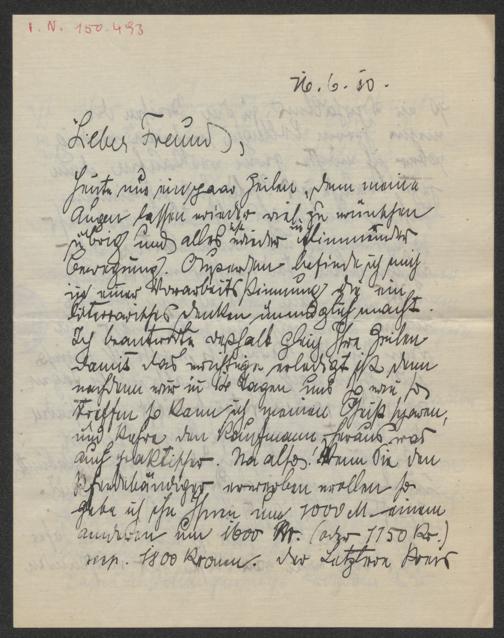 I. N. 150.493
26.6.30.
Lieber Freund,
Heute nur ein paar Zeilen, denn meine
Augen lassen wieder viel zu wünschen
übrig und alles ist wieder in flimmernder
Bewegung. Außerdem befinde ich mich
in einer Vorarbeitsstimmung die ein
literarisches denken unmöglich macht.
Ich beantworte deshalb gleich Ihre Zeilen
damit das wichtige erledigt ist denn
nachdem wir in Tagen uns so wie so
treffen so kann ich meinen Geist sparen,
und kehre den Kaufmann heraus, was
auch praktischer. Na also! Wenn Sie den
Pferdebändiger erwerben wollen so
gebe ich ihn Ihnen um 1000 M einem
anderen um 1600 Kr. (oder 1150 Kr.)
resp. 1800 Kronen. Der letztere Preis